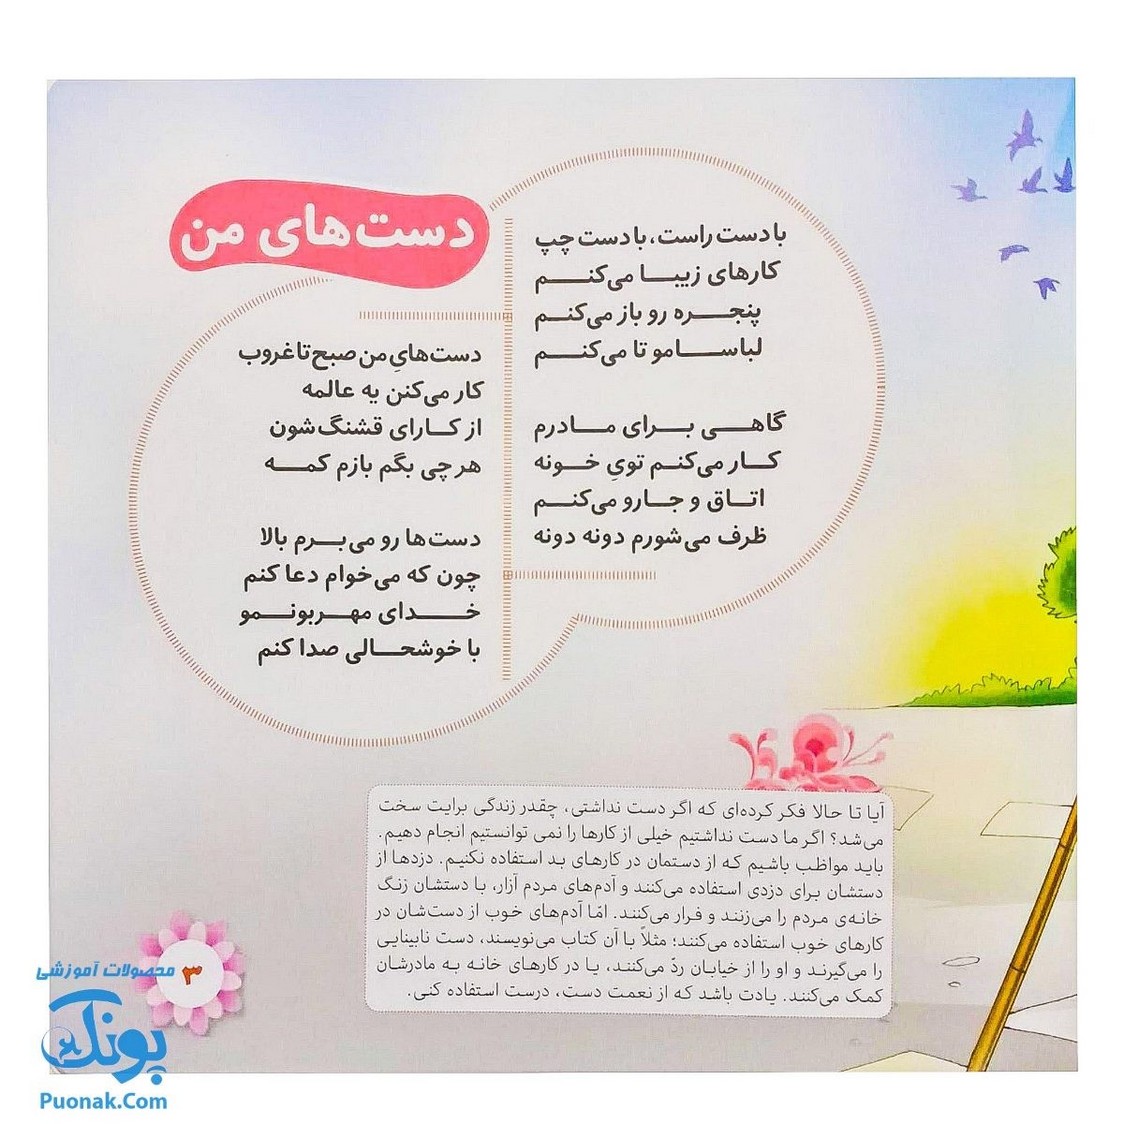 دست‌های من
با دست راست، با دست چپ
کارهای زیبـــا می‌کنــم
پنجـــره رو باز می‌کنــم
لباســـامو تا می‌کنـــم
گاهــی بــرای مــادرم
کــار می‌کنـم تویِ خــونه
اتــاق و جــارو می‌کنـم
ظرف می‌شورم دونه دونه
دست‌هایِ من صبح تا غروب
کار می‌کنن یه عالمه
از کــارای قشنگ‌شون
هر چی بگم بازم کمــه
دست‌ها رو می‌بــرم بالا
چون که می‌خوام دعا کنم
خــدای مهــربونــمو
با خوشحــالی صدا کنم
آیا تا حالا فکر کرده‌ای که اگر دست نداشتی، چقدر زندگی برایت سخت
می‌شد؟ اگر ما دست نداشتیم خیلی از کارها را نمی توانستیم انجام دهیم.
باید مواظب باشیم که از دستمان در کارهای بد استفاده نکنیم. دزدها از
دستشان برای دزدی استفاده می‌کنند و آدم‌های مردم آزار، با دستشان زنگ
خانه‌ی مردم را می‌زنند و فرار می‌کنند. امّا آدم‌های خوب از دست‌شان در
کارهای خوب استفاده می‌کنند؛ مثلاً با آن کتاب می‌نویسند، دست نابینایی
را می‌گیرند و او را از خیابان ردّ می‌کنند، یا در کارهای خانه به مادرشان
کمک می‌کنند. یادت باشد که از نعمت دست، درست استفاده کنی.
۳
محصولات آموزشی
پونک
Puonak.Com